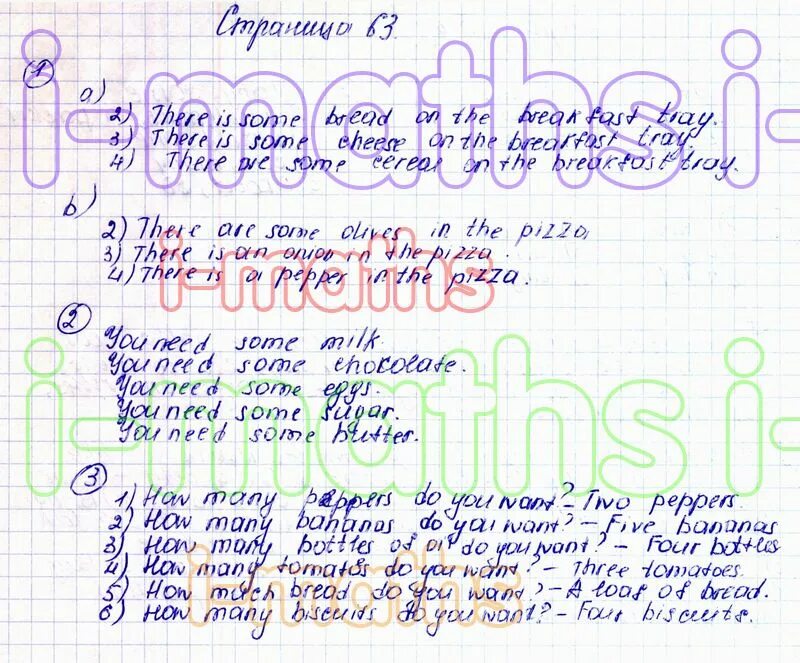 Страница 63.
1
a)
2) There is some bread on the breakfast tray.
3) There is some cheese on the breakfast tray.
4) There are some cereal on the breakfast tray.
b)
2) There are some olives in the pizza.
3) There is an onion in the pizza.
4) There is a pepper in the pizza.
2
You need some milk.
You need some chocolate.
You need some eggs.
You need some sugar.
You need some butter.
3
1) How many peppers do you want? - Two peppers.
2) How many bananas do you want? - Five bananas
3) How many bottles of oil do you want? - Four bottles
4) How many tomatos do you want? - Three tomatoes.
5) How much bread do you want? - A loaf of bread.
6) How many biscuits do you want? - Four biscuits.
i-maths i-
i-maths
i-maths i-
i-maths